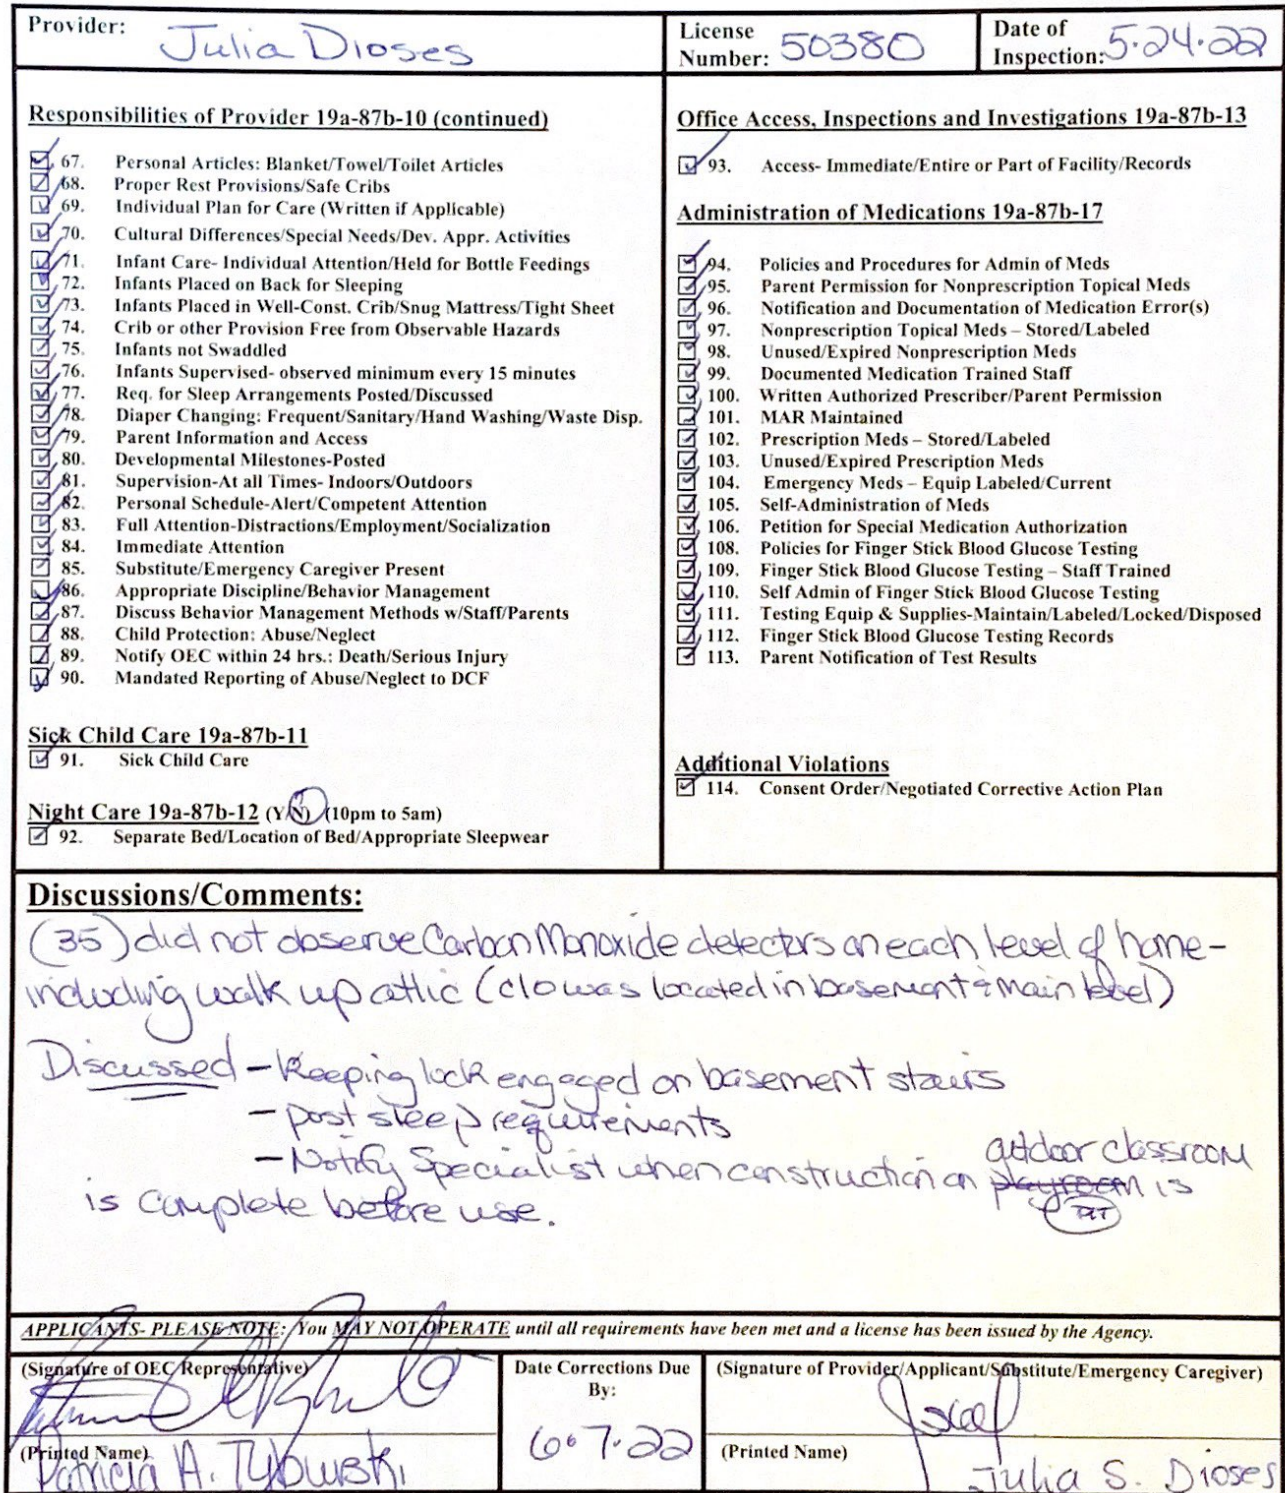 Provider: Julia Dioses
License Number: 50380
Date of Inspection: 5·24·22
Responsibilities of Provider 19a-87b-10 (continued)
67. Personal Articles: Blanket/Towel/Toilet Articles
68. Proper Rest Provisions/Safe Cribs
69. Individual Plan for Care (Written if Applicable)
70. Cultural Differences/Special Needs/Dev. Appr. Activities
71. Infant Care- Individual Attention/Held for Bottle Feedings
72. Infants Placed on Back for Sleeping
73. Infants Placed in Well-Const. Crib/Snug Mattress/Tight Sheet
74. Crib or other Provision Free from Observable Hazards
75. Infants not Swaddled
76. Infants Supervised- observed minimum every 15 minutes
77. Req. for Sleep Arrangements Posted/Discussed
78. Diaper Changing: Frequent/Sanitary/Hand Washing/Waste Disp.
79. Parent Information and Access
80. Developmental Milestones-Posted
81. Supervision-At all Times- Indoors/Outdoors
82. Personal Schedule-Alert/Competent Attention
83. Full Attention-Distractions/Employment/Socialization
84. Immediate Attention
85. Substitute/Emergency Caregiver Present
86. Appropriate Discipline/Behavior Management
87. Discuss Behavior Management Methods w/Staff/Parents
88. Child Protection: Abuse/Neglect
89. Notify OEC within 24 hrs.: Death/Serious Injury
90. Mandated Reporting of Abuse/Neglect to DCF
Sick Child Care 19a-87b-11
91. Sick Child Care
Night Care 19a-87b-12 (Y/N) (10pm to 5am)
92. Separate Bed/Location of Bed/Appropriate Sleepwear
Office Access, Inspections and Investigations 19a-87b-13
93. Access- Immediate/Entire or Part of Facility/Records
Administration of Medications 19a-87b-17
94. Policies and Procedures for Admin of Meds
95. Parent Permission for Nonprescription Topical Meds
96. Notification and Documentation of Medication Error(s)
97. Nonprescription Topical Meds – Stored/Labeled
98. Unused/Expired Nonprescription Meds
99. Documented Medication Trained Staff
100. Written Authorized Prescriber/Parent Permission
101. MAR Maintained
102. Prescription Meds – Stored/Labeled
103. Unused/Expired Prescription Meds
104. Emergency Meds – Equip Labeled/Current
105. Self-Administration of Meds
106. Petition for Special Medication Authorization
108. Policies for Finger Stick Blood Glucose Testing
109. Finger Stick Blood Glucose Testing – Staff Trained
110. Self Admin of Finger Stick Blood Glucose Testing
111. Testing Equip & Supplies-Maintain/Labeled/Locked/Disposed
112. Finger Stick Blood Glucose Testing Records
113. Parent Notification of Test Results
Additional Violations
114. Consent Order/Negotiated Corrective Action Plan
Discussions/Comments:
(35) did not observe Carbon Monoxide detectors on each level of home-
including walk up attic (c/o was located in basement & main level)
Discussed - Keeping lock engaged on basement stairs
- post sleep requirements
- Notify Specialist when construction on playroom outdoor classroom is
is complete before use.
APPLICANTS- PLEASE NOTE: You MAY NOT OPERATE until all requirements have been met and a license has been issued by the Agency.
(Signature of OEC Representative)
(Printed Name)
Patricia A. Tybuwski
Date Corrections Due
By:
6·7·22
(Signature of Provider/Applicant/Substitute/Emergency Caregiver)
(Printed Name)
Julia S. Dioses